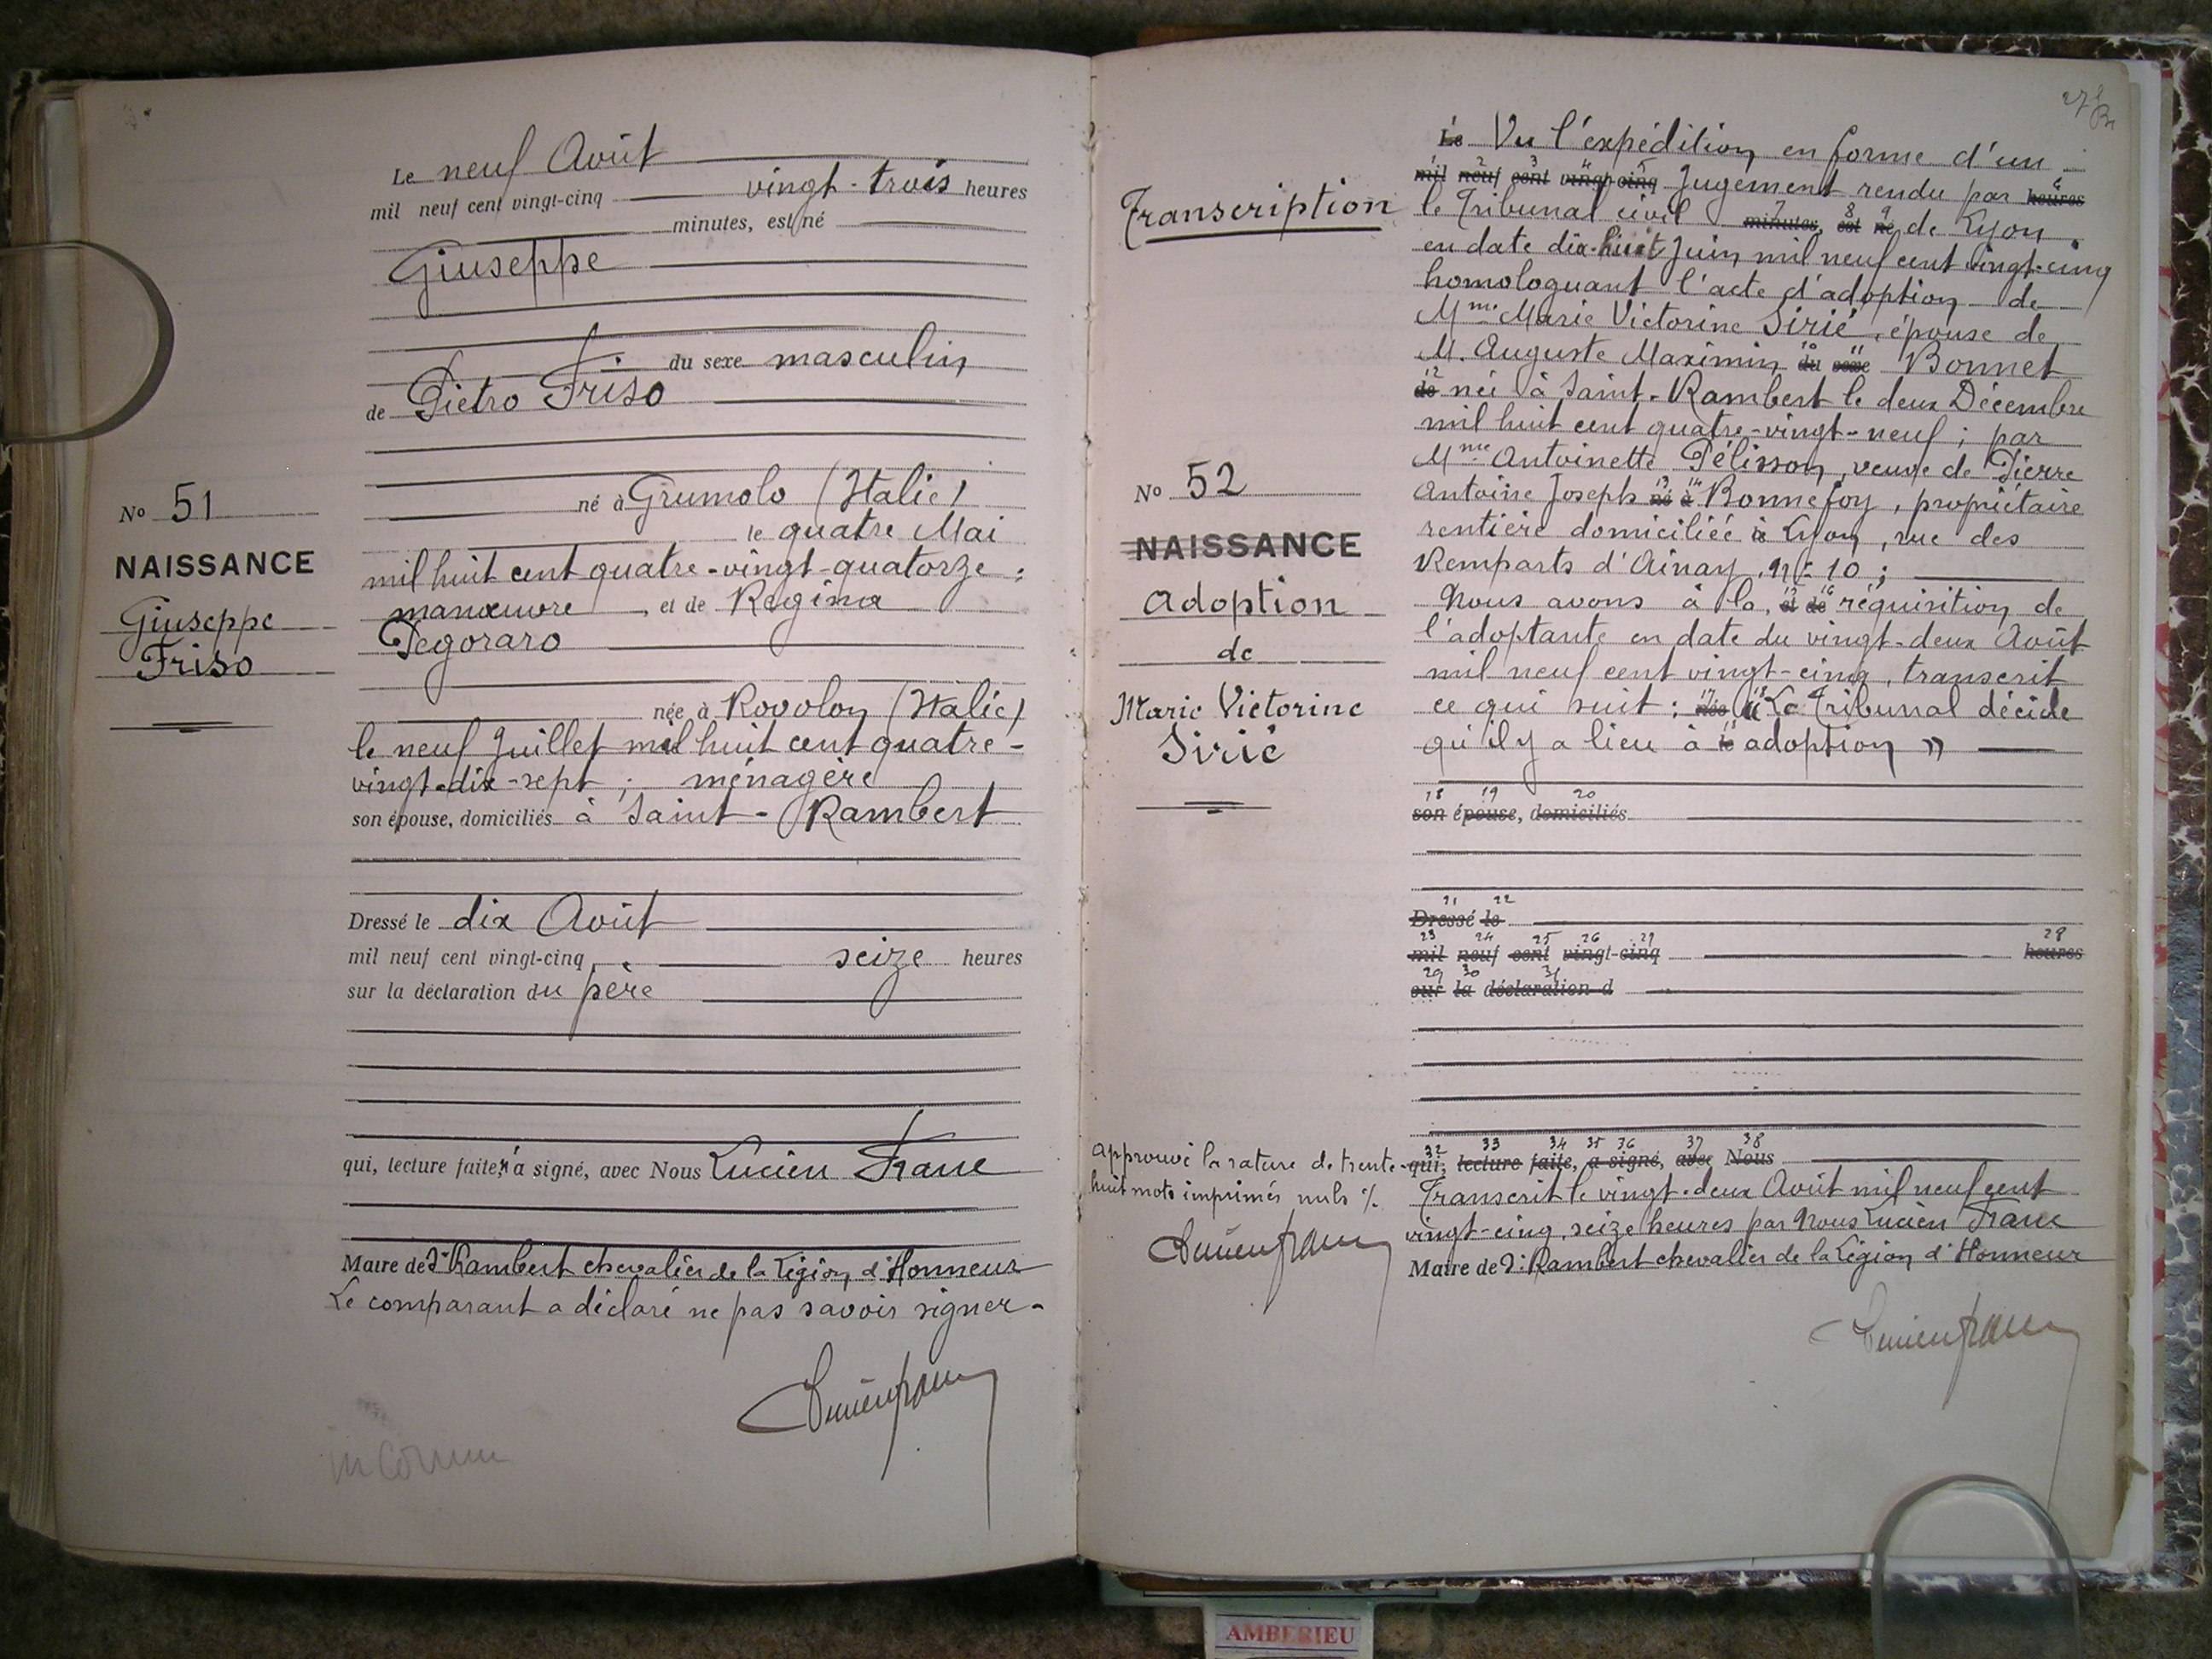 Le neuf Août
mil neuf cent vingt-cinq vingt-trois heures
minutes, est né
Giuseppe
du sexe masculin
de Pietro Friso
né à Grumolo (Italie)
le quatre Mai
mil huit cent quatre-vingt-quatorze;
manœuvre, et de Regina
Pegoraro
née à Rovolon (Italie)
le neuf Juillet mil huit cent quatre-
vingt-dix-sept; ménagère
son épouse, domiciliés à Saint-Rambert
Dressé le dix Août
mil neuf cent vingt-cinq, seize heures
sur la déclaration du père
qui, lecture faite, n'a signé, avec Nous Lucien Franc
Maire de St Rambert chevalier de la Légion d'Honneur
Le comparant a déclaré ne pas savoir signer-
No 51
NAISSANCE
Giuseppe
Friso
Transcription
No 52
NAISSANCE
Adoption
de
Marie Victorine
Sirié
Approuvé la rature de trente-
huit mots imprimés nuls
Le Vu l'expédition en forme d'un
mil neuf cent vingt-cinq Jugement rendu par heures
le Tribunal civil minutes, est né de Lyon,
en date dix-huit Juin mil neuf cent vingt-cinq
homologuant l'acte d'adoption de
Mme Marie Victorine Sirié, épouse de
M. Auguste Maximin du sexe Bonnet
de née à Saint-Rambert le deux Décembre
mil huit cent quatre-vingt-neuf; par
Mme Antoinette Pélisson, veuve de Pierre
Antoine Joseph né à Bonnefoy, propriétaire
rentière domiciliée à Lyon, rue des
Remparts d'Ainay, n° 10;
Nous avons à la, et de réquisition de
l'adoptante en date du vingt-deux Août
mil neuf cent vingt-cinq, transcrit
ce qui suit: née à « Le Tribunal décide
qu'il y a lieu à le adoption »
son épouse, domiciliés
Dressé le
mil neuf cent vingt-cinq heures
sur la déclaration d
qui, lecture faite, a signé, avec Nous
Transcrit le vingt-deux Août mil neuf cent
vingt-cinq, seize heures par Nous Lucien Franc
Maire de St Rambert chevalier de la Légion d'Honneur
AMBERIEU